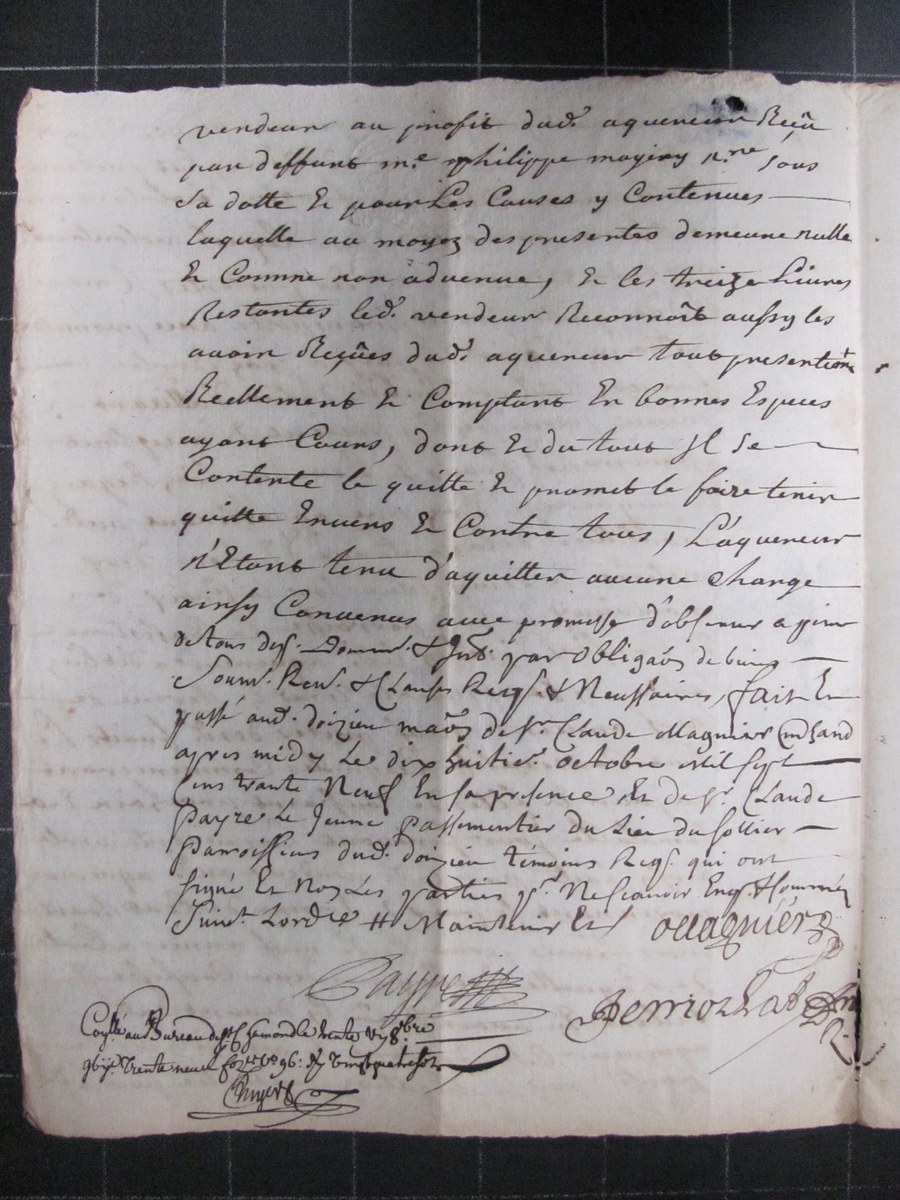 vendeur au profit dud. aquereur Reçüe
par deffunt me. philippe mogiery nre sous
Sa datte Et pour Les Causes y Contenues
laquelle au moyez des presentes demeure nulle
Et Comme non advenue, Et les treize Livres
Restantes led. vendeur Reconnoit aussy les
avoir Reçûes dud. aquereur tout presentemt.
Reellement Et Comptant En bonnes Especes
ayant Cours, dont Et du tout Il Se
Contente le quitte Et promet le faire tenir
quitte Envers Et Contre tous, L'aquereur
n'Etant tenu d'aquitter aucune charge
ainsy Convenus avec promesse d'observer a peine
de tous desp. Domm. & Int. par obligãôn de biens
Soum. Ren. & Clauses Req. & Nessaires, fait Et
passé aud. doizieu maõn de sr. Claude Magnier mchand
apres midy Le dix huitie. octobre Mil sept
Cens trante Neuf En sa presence Et de sr. Claude
Payre Le Jeune passementier du Lieu du sollier
Parroissiens dud. doizieu témoins Req. qui ont
signé Et Non Les parties pr. Ne scavoir Enq. & sommées
Suivt. Lordce # Maintenir Et Magnier
Payre
Perriozhat
Collé au Bureau de St Chamond le trente 8bre
trente neuf